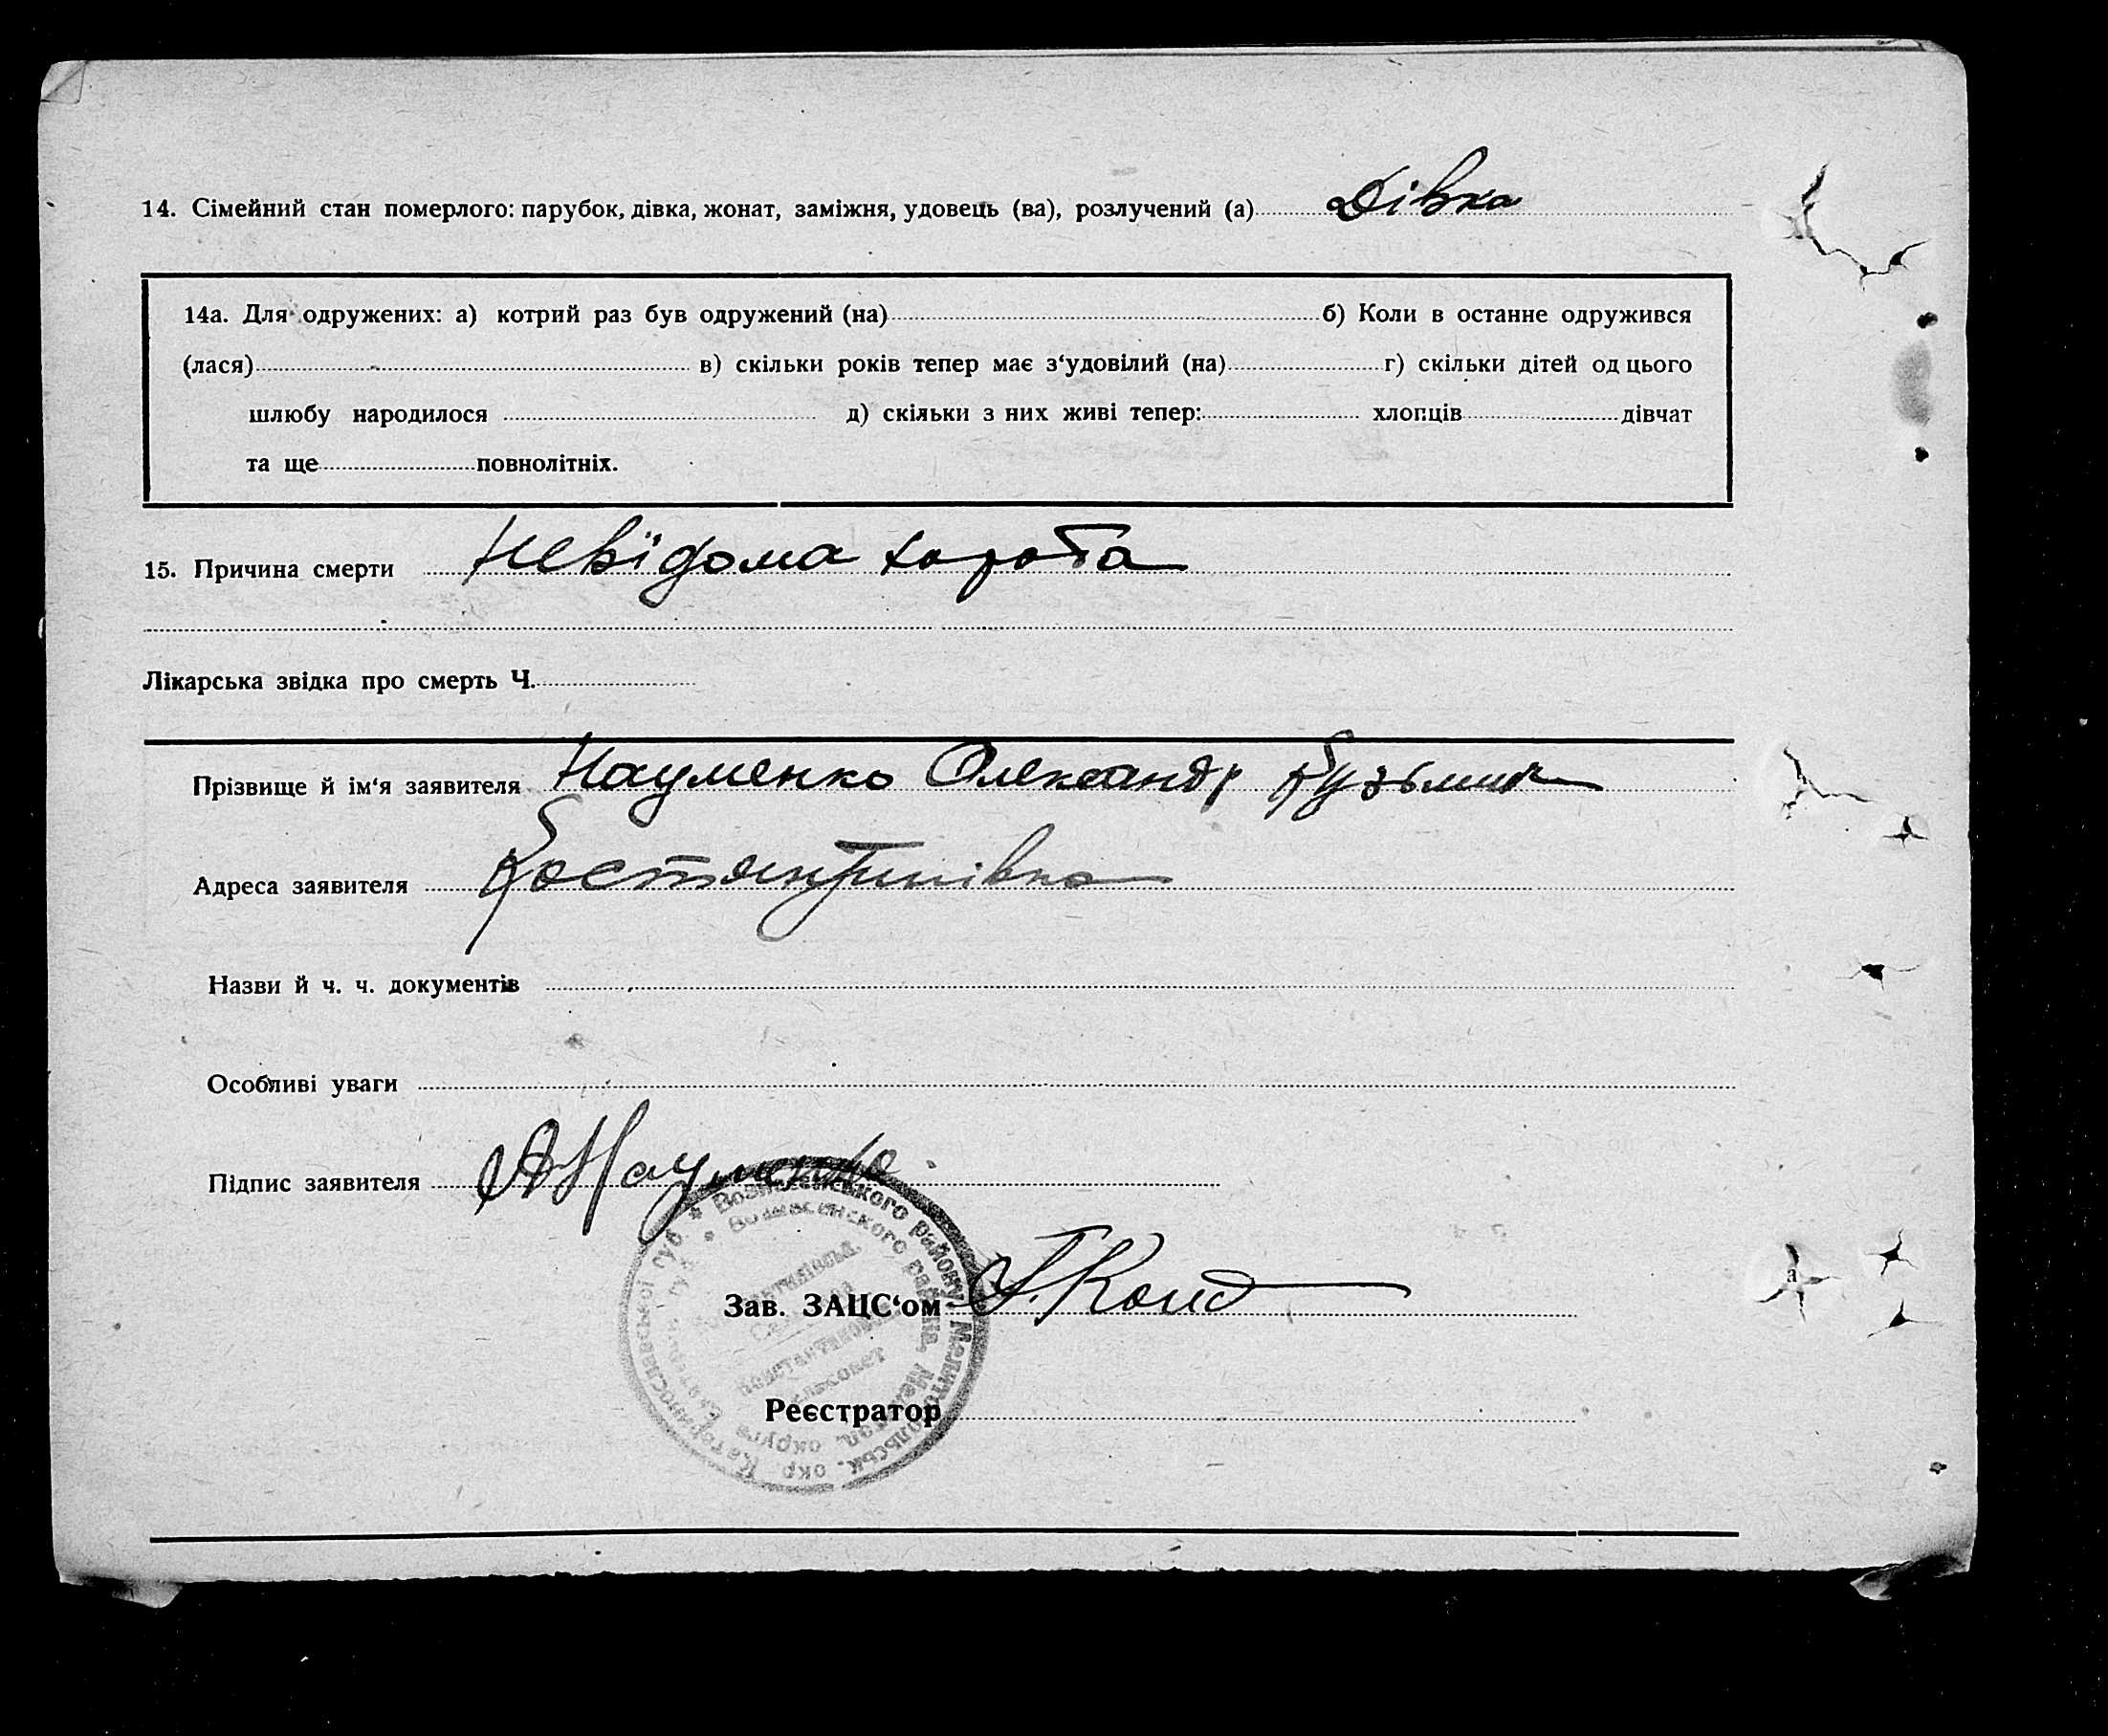 14. Сімейний стан померлого: парубок, дівка, жонат, заміжня, удовець (ва), розлучений (а) Дівка
14а. Для одружених: а) котрий раз був одружений (на) б) Коли в останне одружився
(лася) в) скільки років тепер має з‘удовілий (на) г) скільки дітей од цього
шлюбу народилося д) скільки з них живі тепер: хлопців дівчат
та ще повнолітніх.
15. Причина смерти Невідома хороба
Лікарська звідка про смерть Ч.
Прізвище й ім‘я заявителя Науменко Олександр Кузьмич
Адреса заявителя Костянтинівка
Назви й ч. ч. документів
Особливі уваги
Підпис заявителя АНауменко
* Вознесенського району, Мелитопольськ. окр. Катеринославської губ.
Вознесенского района, Мелитоп. округа
Константиновский
сельсовет
Зав. ЗАЦС‘ом
Реєстратор